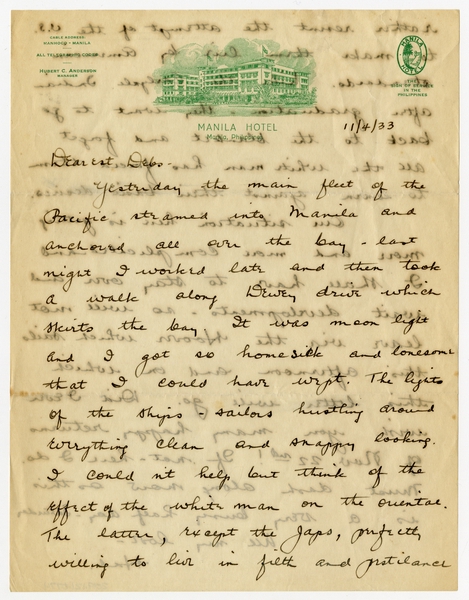 CABLE ADDRESS:
MANHOCO - MANILA
ALL TELEGRAPHIC CODES
HUBERT C. ANDERSON
MANAGER
MANILA HOTEL
THE
IN THE
PHILIPPINES
MANILA HOTEL
11/4/33
Dearest Debs -
Yesterday the main fleet of the
Pacific streamed into Manila and
anchored all over the bay - last
night I worked late and then took
a walk along Dewey drive which
skirts the bay It was moon light
and I got so homesick and lonesome
that I could have wept. The lights
of the ships - sailors hustling around
Everything clean and snappy looking.
I could n't help but think of the
Effect of the white man on the oriental.
The latter, Except the Japs, perfectly
willing to live in filth and pestilance